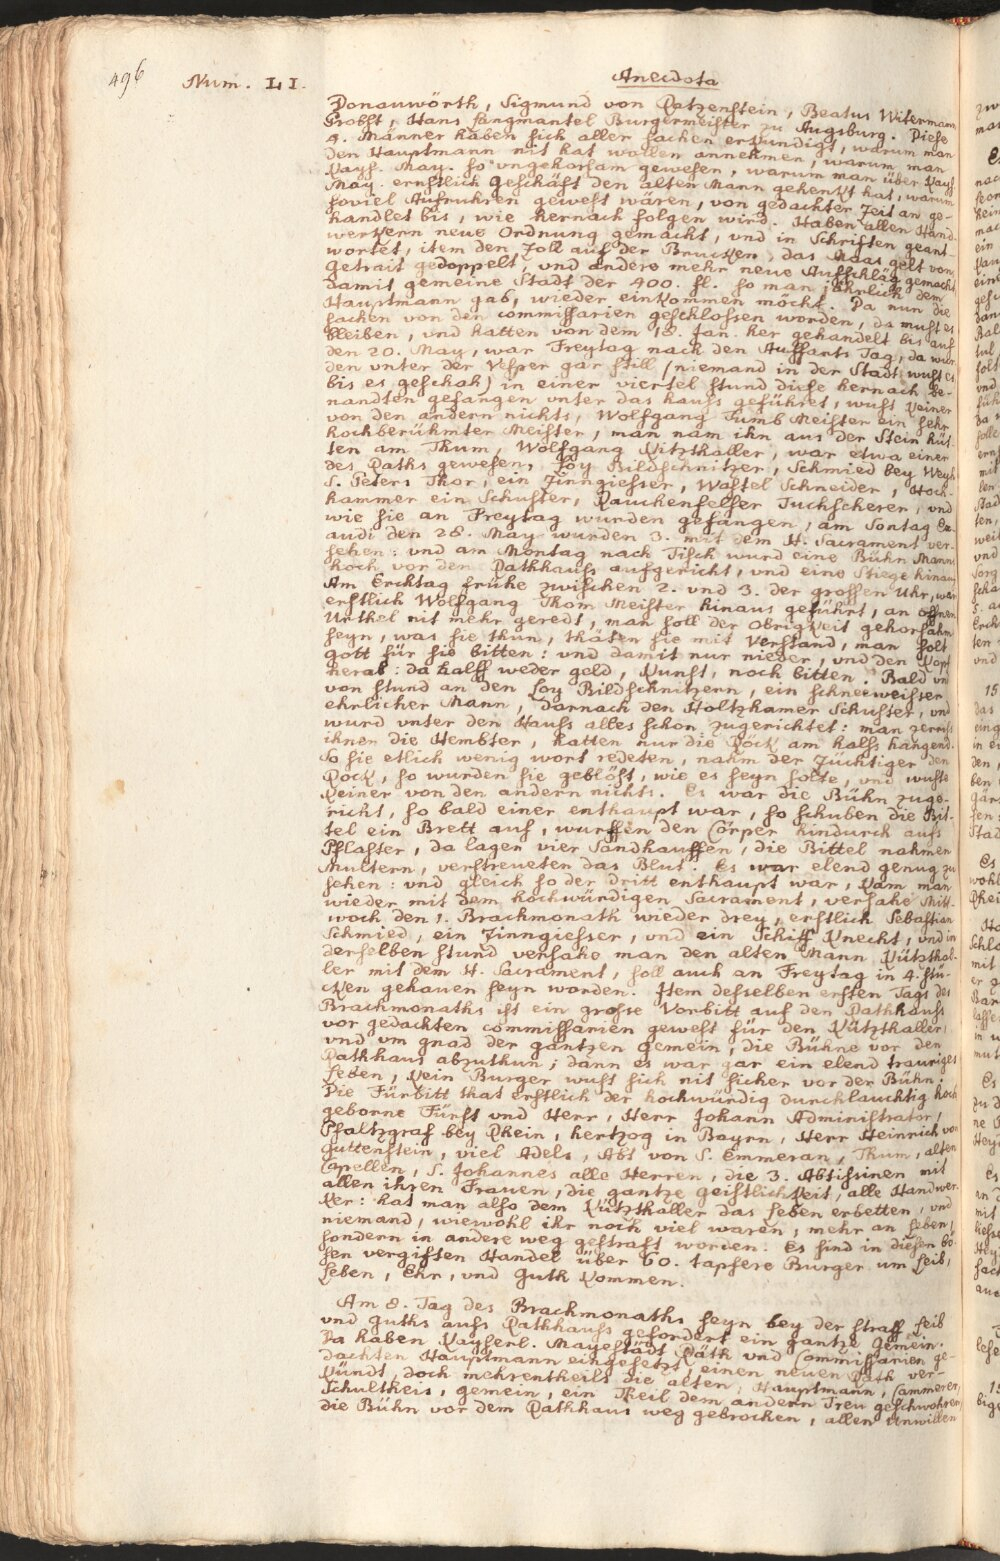 496
Num. LI.
Anecdota
Donauwörth, Sigmund von Ratzenstein, Beatus Witermann
Probst, Hans Langmantel Burgermeister zu Augsburg. Diese
4. Männer haben sich aller sachen erkundigt, warum man
den Hauptmann nit hat wollen annehmen, warum man
Kays. May. so ungehorsam gewesen, warum man über Kays.
May. ernstlich geschäft den alten Mann gehenkt hat, warum
soviel Aufruhren gewest wären, von gedachter Zeit an ge-
handlet bis, wie hernach folgen wird. Haben allen Hand-
werkern neue Ordnung gemacht, und in Schriften geant-
wortet, item den Zoll auf der Brucken, das Maas gelt vom
Getrait gedoppelt, und andere mehr neue Aufschläg gemacht
damit gemeine Stadt der 400. fl. so man jährlich dem
Hauptmann gab, wieder einkommen möcht. Da nun die
sachen von den commissarien geschlossen worden, da must es
bleiben, und hatten von dem 18. Jan. her gehandelt bis auf
den 20. May, war Freytag nach den Auffarts Tag, da wur-
den unter der Vesper gar still (niemand in der Stadt wust es
bis es geschah) in einer viertel stund diese hernach be-
nandten gefangen unter das hauss geführet, wust keiner
von den andern nichts, Wolfgang Tumb Meister ein sehr
hochberühmter Meister, man nam ihn aus der Stein hüt-
ten am Thum, Wolfgang Kitzthaller, war etwa einer
des Raths gewesen, Loy Bildschnitzer, Schmied bey Weyh
S. Peters Thor, ein Zinngiesser, Wastel Schneider, Hoch-
hammer ein Schuster, Rauchenfelser Tuchscherer, und
wie sie an Freytag wurden gefangen, am Sontag Ex-
audi den 28. May wurden 3. mit dem H. Sacrament ver-
sehen: und am Montag nach Tisch wurd eine Bühn Manns
hoch vor dem Rathhauss aufgericht, und eine Stiege hinauf
Am Erchtag frühe zwischen 2. und 3. der grossen Uhr, war
erstlich Wolfgang Thom Meister hinaus geführt, an offnen
Urthel nit mehr geredt, man soll der obrigkeit gehorsahm
seyn, was sie thun, thäten sie mit Verstand, man solt
gott für sie bitten: und damit nur nieder, und den Kopf
herab: da halff weder geld, Kunst, noch bitten. Bald un
von stund an den Loy Bildschnitzern, ein schneeweisser
ehrlicher Mann, darnach den Holtzhamer Schuster, und
wurd unter den Hauss alles schon zugerichtet: man zerriss
ihnen die Hembter, hatten nur die Röck am halss hangend.
So sie etlich wenig wort redeten, nahm der Züchtiger den
Rock, so wurden sie geblöst, wie es seyn solte, und wuste
Keiner von den andern nichts. Es war die Bühn zuge-
richt, so bald einer enthaupt war, so schuben die Bit-
tel ein Brett auf, wurffen den Cörper hindurch aufs
Pflaster, da lagen vier Sandhauffen, die Bittel nahmen
Multern, verstreueten das Blut. Es war elend genug zu
sehen: und gleich so der dritt enthaupt war, kam man
wieder mit dem hochwürdigen Sacrament, versahe Mitt-
woch den 1. Brachmonath wieder drey, erstlich Sebastian
Schmied, ein Zinngiesser, und ein Schiff Knecht, und in
derselben stund versahe man den alten Mann Kützthal-
ler mit dem H. Sacrament, soll auch an Freytag in 4. stü-
cken gehauen seyn worden. Item desselben ersten Tags des
Brachmonaths ist ein grosse Vorbitt auf den Rathhauss
vor gedachten commissarien gewest für den Kützthaller,
und um gnad der gantzen gemein, die Bühne vor den
Rathhaus abzuthun; dann es war gar ein elend trauriges
sehen, kein Burger wust sich nit sicher vor der Bühn.
Die Fürbitt that erstlich der hochwürdig durchlauchtig hoch-
geborne Fürst und Herr, Herr Johann Administrator,
Pfaltzgraf bey Rhein, hertzog in Bayrn, Herr Heinrich von
Guttenstein, viel Adels, Abt von S. Emmeran, Thum, alten
Capellen, S. Johannes alle Herren, die 3. Abtissinen mit
allen ihren Frauen, die gantze geistlichkeit, alle Handwer-
ker: hat man also dem Kützthaller das leben erbetten, und
niemand, wiewohl ihr noch viel waren, mehr an leben,
sondern in andere weg gestraft worden. Es sind in diesen bö-
sen vergiften Handel über 60. tapfere Burger um leib,
leben, Ehr, und Guth kommen.
Am 8. Tag des Brachmonaths seyn bey der straff leib
und guths aufs Rathhauss gefordert ein gantze Gemein.
Da haben Kayserl. Mayestädt Räth und Commissarien ge-
dachten Hauptmann eingesetzt, einen neuen Rath ver-
kündt, doch mehrentheils die alten, Hauptmann, Cammerer,
Schultheis, gemein, ein Theil dem andern Treu geschwohren,
die Bühn vor dem Rathhaus weg gebrochen, allen Unwillen